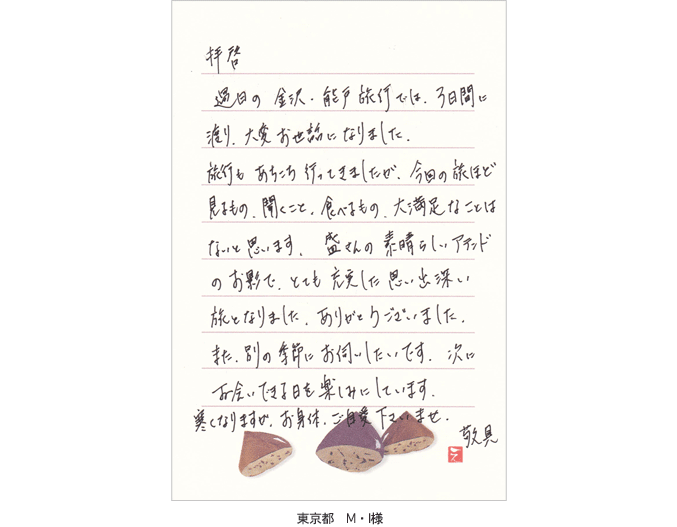 拝啓
過日の金沢・能戸旅行では、3日間に
渡り、大変お世話になりました。
旅行も あちこち行ってきましたが、今回の旅ほど
見るもの、聞くこと、食べるもの、大満足なことは
ないと思います。盛さんの素晴らしいアテンド
のお影で、とても充実した思い出深い
旅となりました。ありがとうございました。
また、別の季節にお伺いしたいです。次に
お会いできる日を楽しみにしています。
寒くなりますが、お身体、ご自愛下さいませ。
敬具
東京都 M・I様